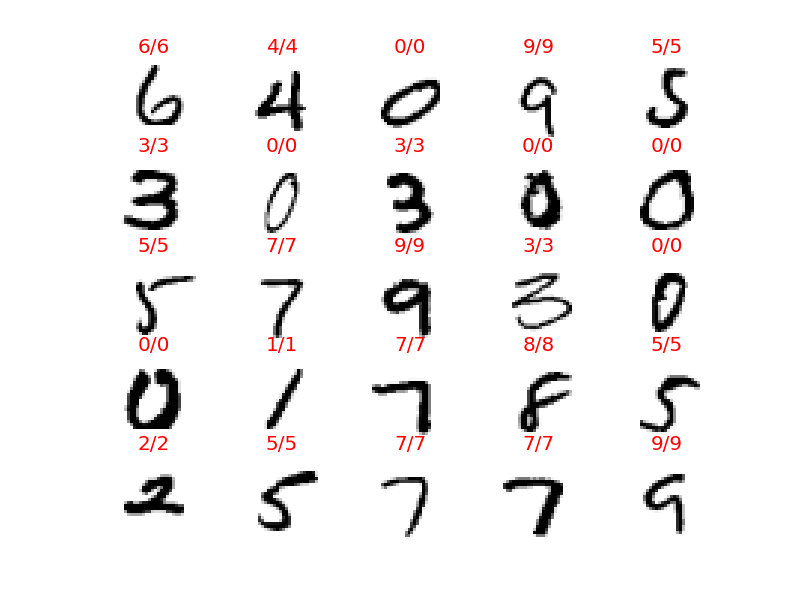 6/6 4/4 0/0 9/9 5/5
6 4 0 9 5
3/3 0/0 3/3 0/0 0/0
3 0 3 0 0
5/5 7/7 9/9 3/3 0/0
5 7 9 3 0
0/0 1/1 7/7 8/8 5/5
0 1 7 8 5
2/2 5/5 7/7 7/7 9/9
2 5 7 7 9